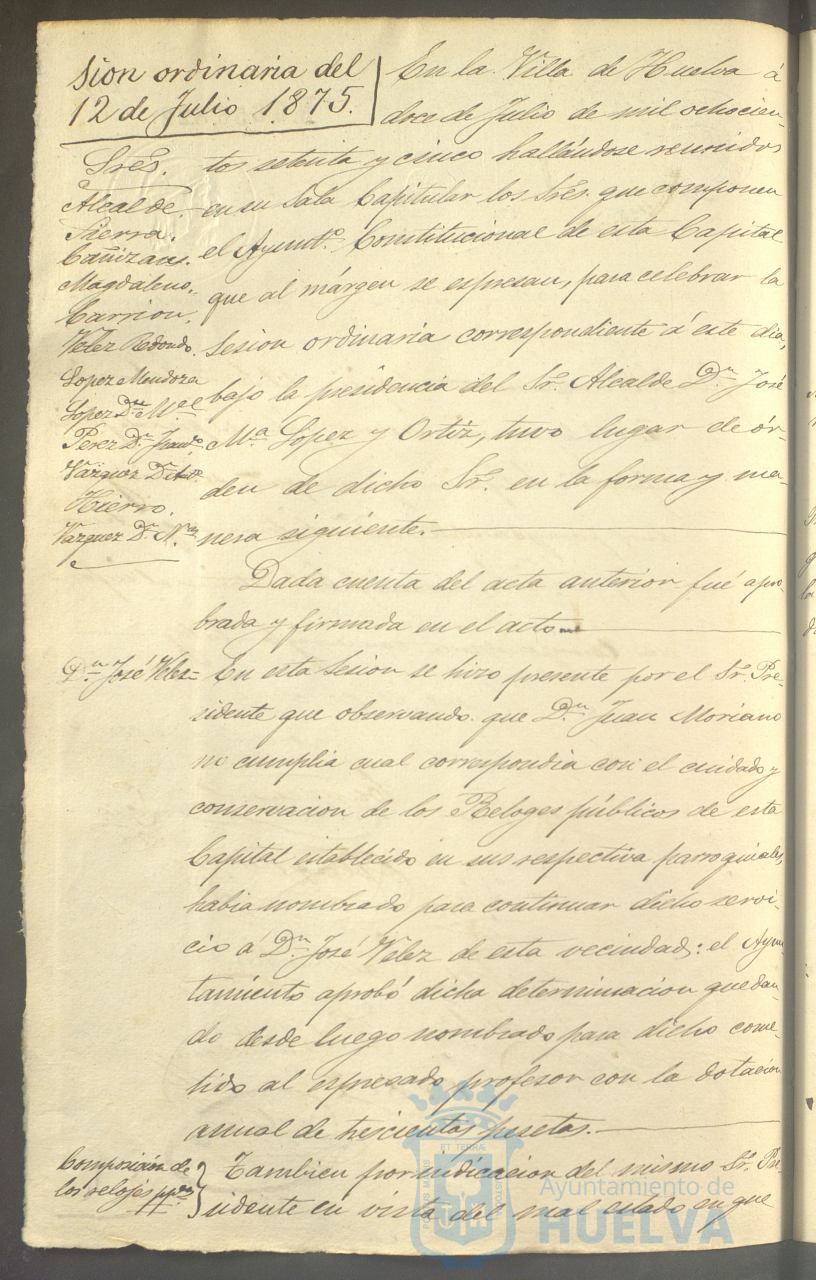 sion ordinaria del
12 de Julio 1875.
Sres.
Alcalde.
Sierra.
Cañizares.
Magdaleno.
Carrion.
Velez Redondo.
Lopez Mendoza
Lopez Dn Mel
Perez Dn Juan
Vazquez Dn
Hierro.
Vazquez Dn N.
En la Villa de Huelva á
doce de Julio de mil ochocien-
tos setenta y cinco hallándose reunidos
en su Sala Capitular los Sres. que componen
el Ayuntº Constitucional de esta Capital
que al márgen se espresan, para celebrar la
sesion ordinaria correspondiente á este dia,
bajo la presidencia del Sr. Alcalde Dn José
Mª Lopez y Ortiz, tuvo lugar de ór-
den de dicho Sr. en la forma y ma-
nera siguiente.
Dada cuenta del acta anterior fué apro-
bada y firmada en el acto
Dn José Velez=
En esta Sesion se hizo presente por el Sr. Pre-
sidente que observando que Dn Juan Moriano
no cumplia cual correspondia con el cuidado y
conservacion de los Reloges públicos de esta
Capital establecido en sus respectiva parroquiales,
habia nombrado para continuar dicho servi-
cio á Dn José Velez de esta vecindad: el Ayun-
tamiento aprobó dicha determinacion quedan-
do desde luego nombrado para dicho come-
tido al espresado profesor con la dotacion
anual de trescientas pesetas.
Composicion de
los relojes ppcos
Tambien por indicacion del mismo Sr. Pre-
sidente en vista del mal estado en que
Ayuntamiento de
HUELVA